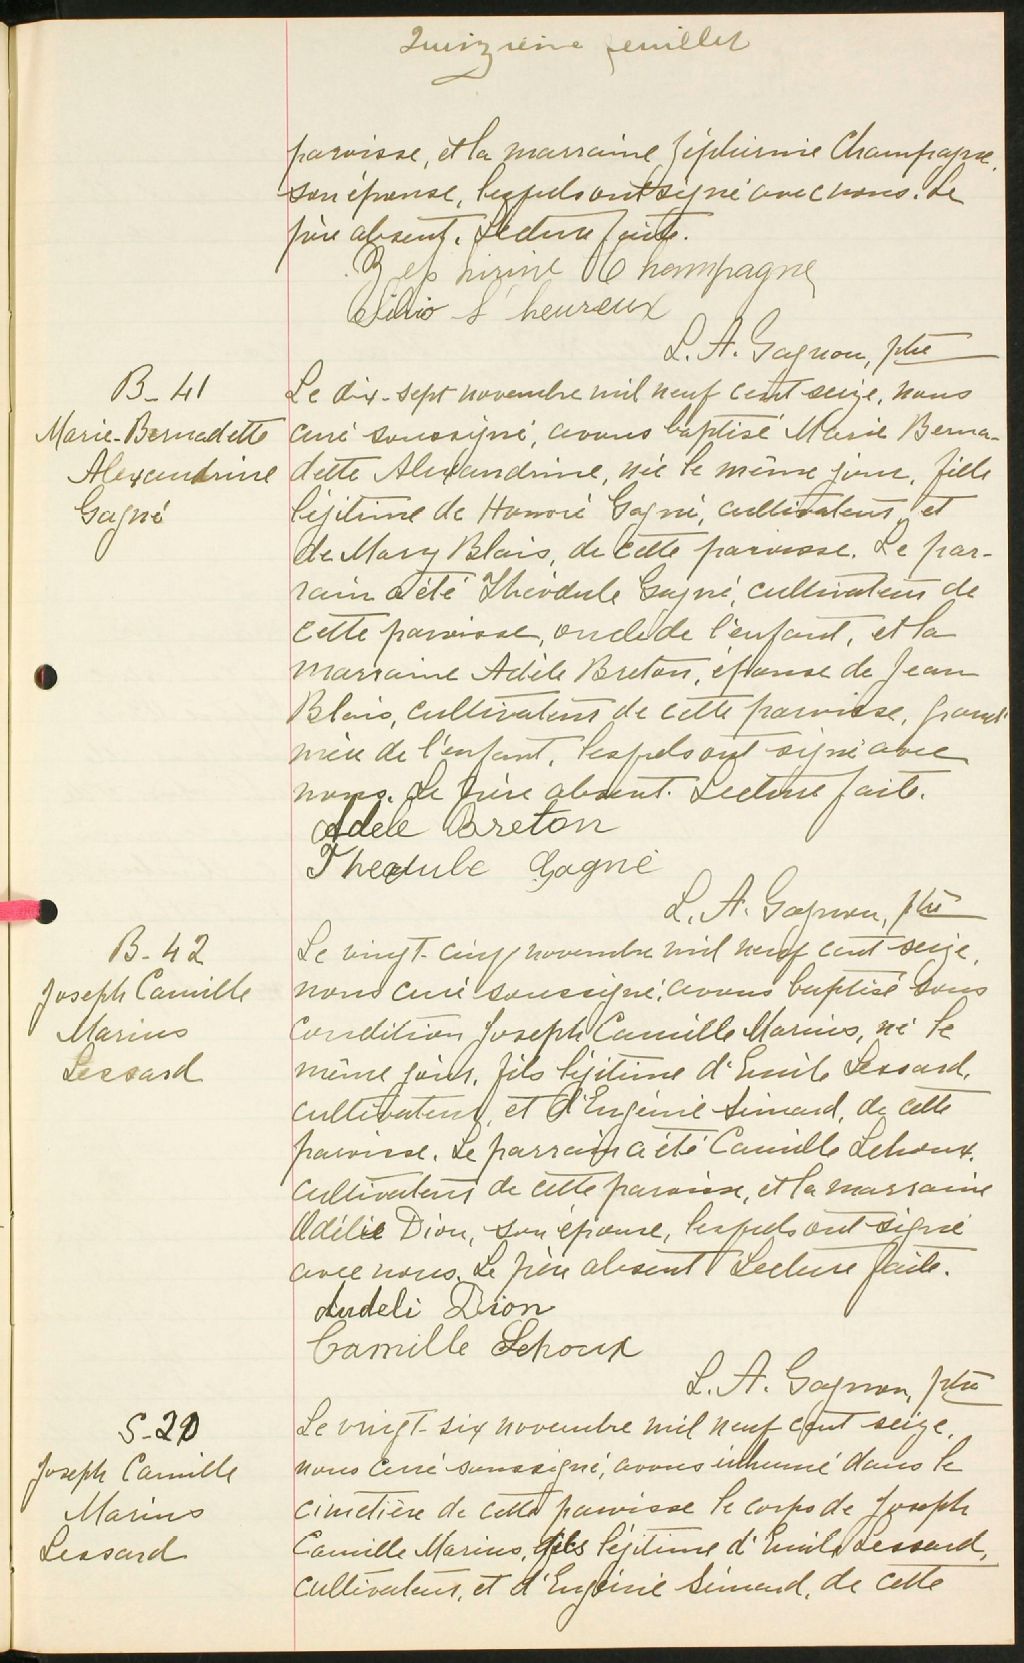 Quinzième feuillet
paroisse, et la marraine Zéphirinie Champagne,
son épouse, lesquels ont signé avec nous. Le
père absent. Lecture faite.
Zephirine Champagne
Silvio L'heureux
L. A. Gagnon, ptre
B-41
Marie-Bernadette
Alexandrine
Gagné
Le dix-sept novembre mil neuf cent seize, nous
curé soussigné, avons baptisé Marie Berna-
dette Alexandrine, née le même jour, fille
légitime de Honoré Gagné, cultivateur, et
de Mary Blais, de cette paroisse. Le par-
rain a été Théodule Gagné, cultivateur de
cette paroisse, oncle de l'enfant, et la
marraine Adèle Breton, épouse de Jean
Blais, cultivateur de cette paroisse, grand'
mère de l'enfant, lesquels ont signé avec
nous. Le père absent. Lecture faite.
Adele Breton
Theodule Gagné
L. A. Gagnon, ptre
B-42
Joseph Camille
Marius
Lessard
Le vingt-cinq novembre mil neuf cent seize,
nous curé soussigné, avons baptisé sous
condition Joseph Camille Marius, né le
même jour, fils légitime d'Emile Lessard,
cultivateur, et d'Eugénie Simard, de cette
paroisse. Le parrain a été Camille Lehoux,
cultivateur de cette paroisse, et la marraine
Odélie Dion, son épouse, lesquels ont signé
avec nous. Le père absent Lecture faite.
Audeli Dion
Camille Lehoux
L. A. Gagnon, ptre
S-20
Joseph Camille
Marius
Lessard
Le vingt-six novembre mil neuf cent seize,
nous curé soussigné, avons inhumé dans le
cimetière de cette paroisse le corps de Joseph
Camille Marius, fils légitime d'Emile Lessard,
cultivateur, et d'Eugénie Simard, de cette